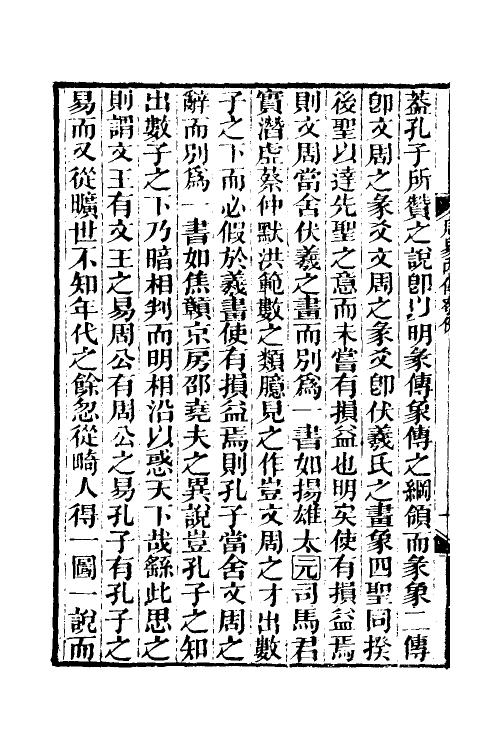 蓋孔子所贊之說卽以明彖傳象傳之綱領而彖象二傳
卽文周之彖爻文周之彖爻卽伏羲氏之畫象四聖同揆
後聖以達先聖之意而未嘗有損益也明矣使有損益焉
則文周當舍伏羲之畫而別爲一書如揚雄太元司馬君
實潛虛蔡仲默洪範數之類臆見之作豈文周之才出數
子之下而必假於羲畫使有損益焉則孔子當舍文周之
辭而別爲一書如焦贛京房邵堯夫之異說豈孔子之知
出數子之下乃暗相判而明相沿以惑天下哉繇此思之
則謂文王有文王之易周公有周公之易孔子有孔子之
易而又從曠世不知年代之餘忽從畸人得一圖一說而